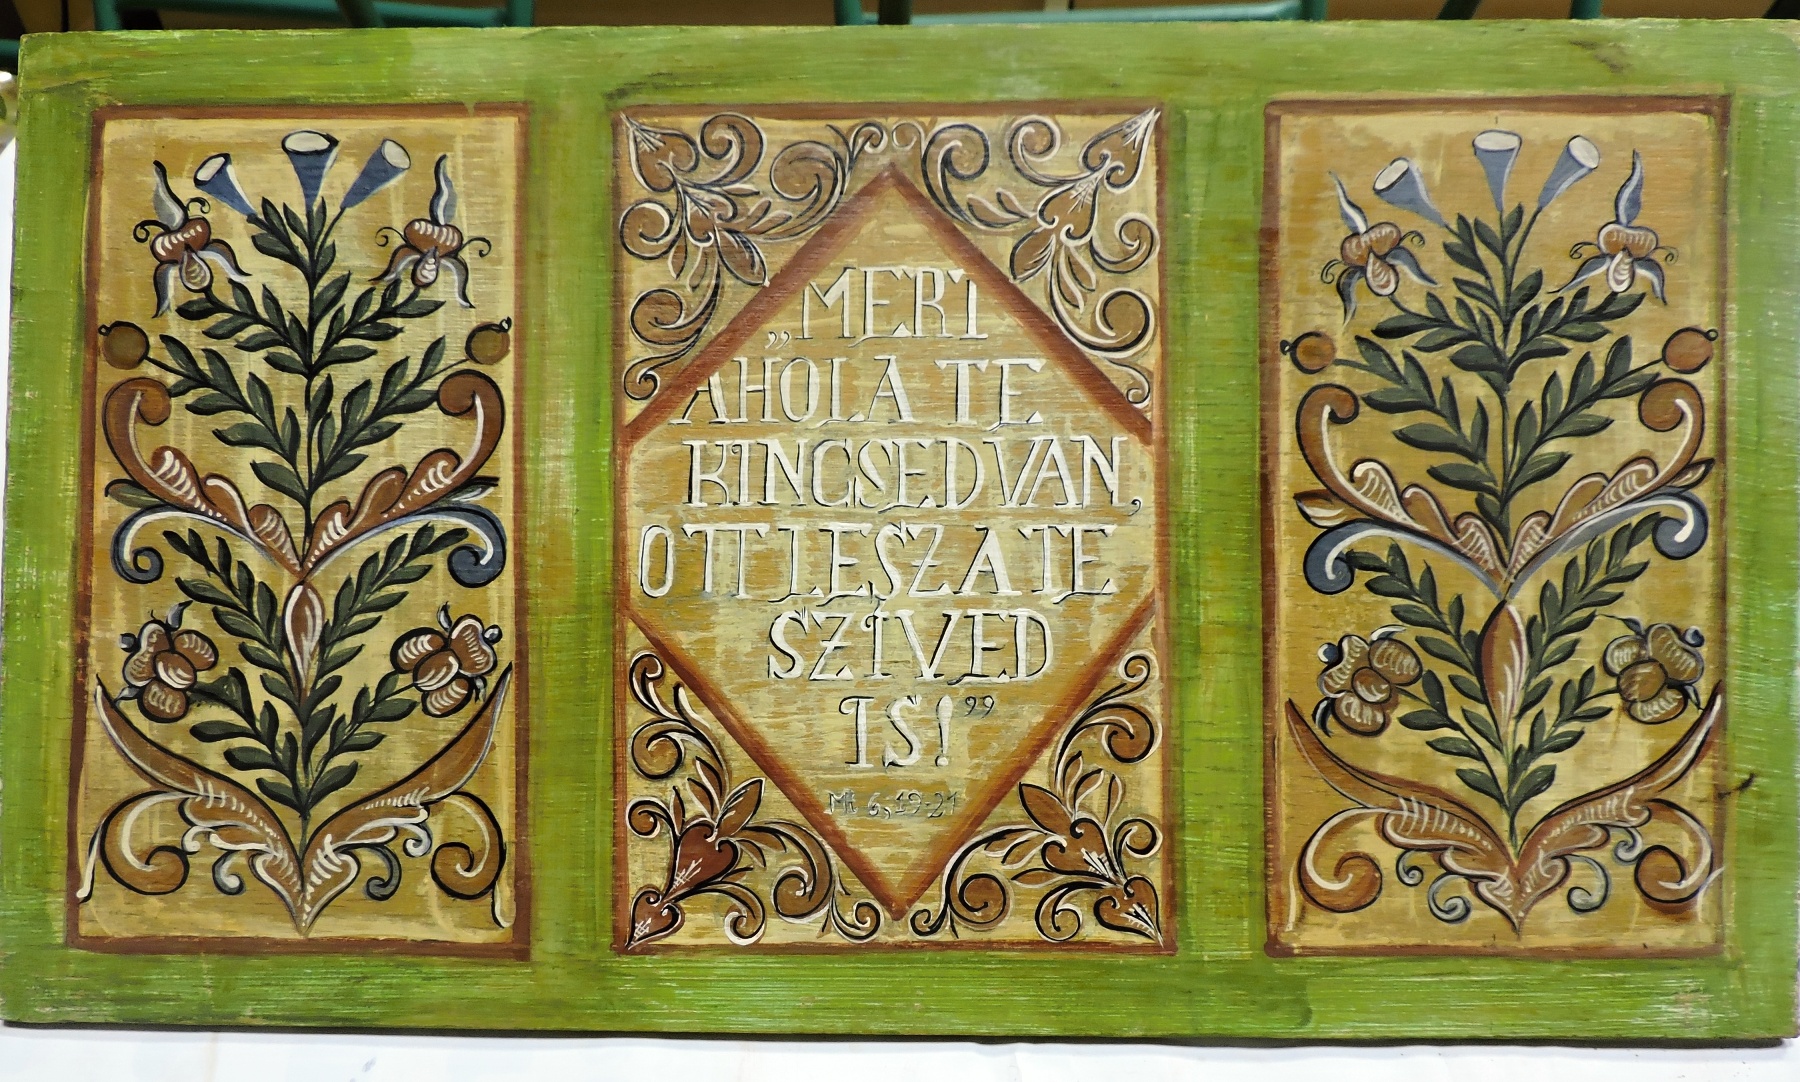 „MERT
AHOL A TE
KINCSED VAN,
OTT LESZ A TE
SZIVED
IS!”
Mt 6,19-21